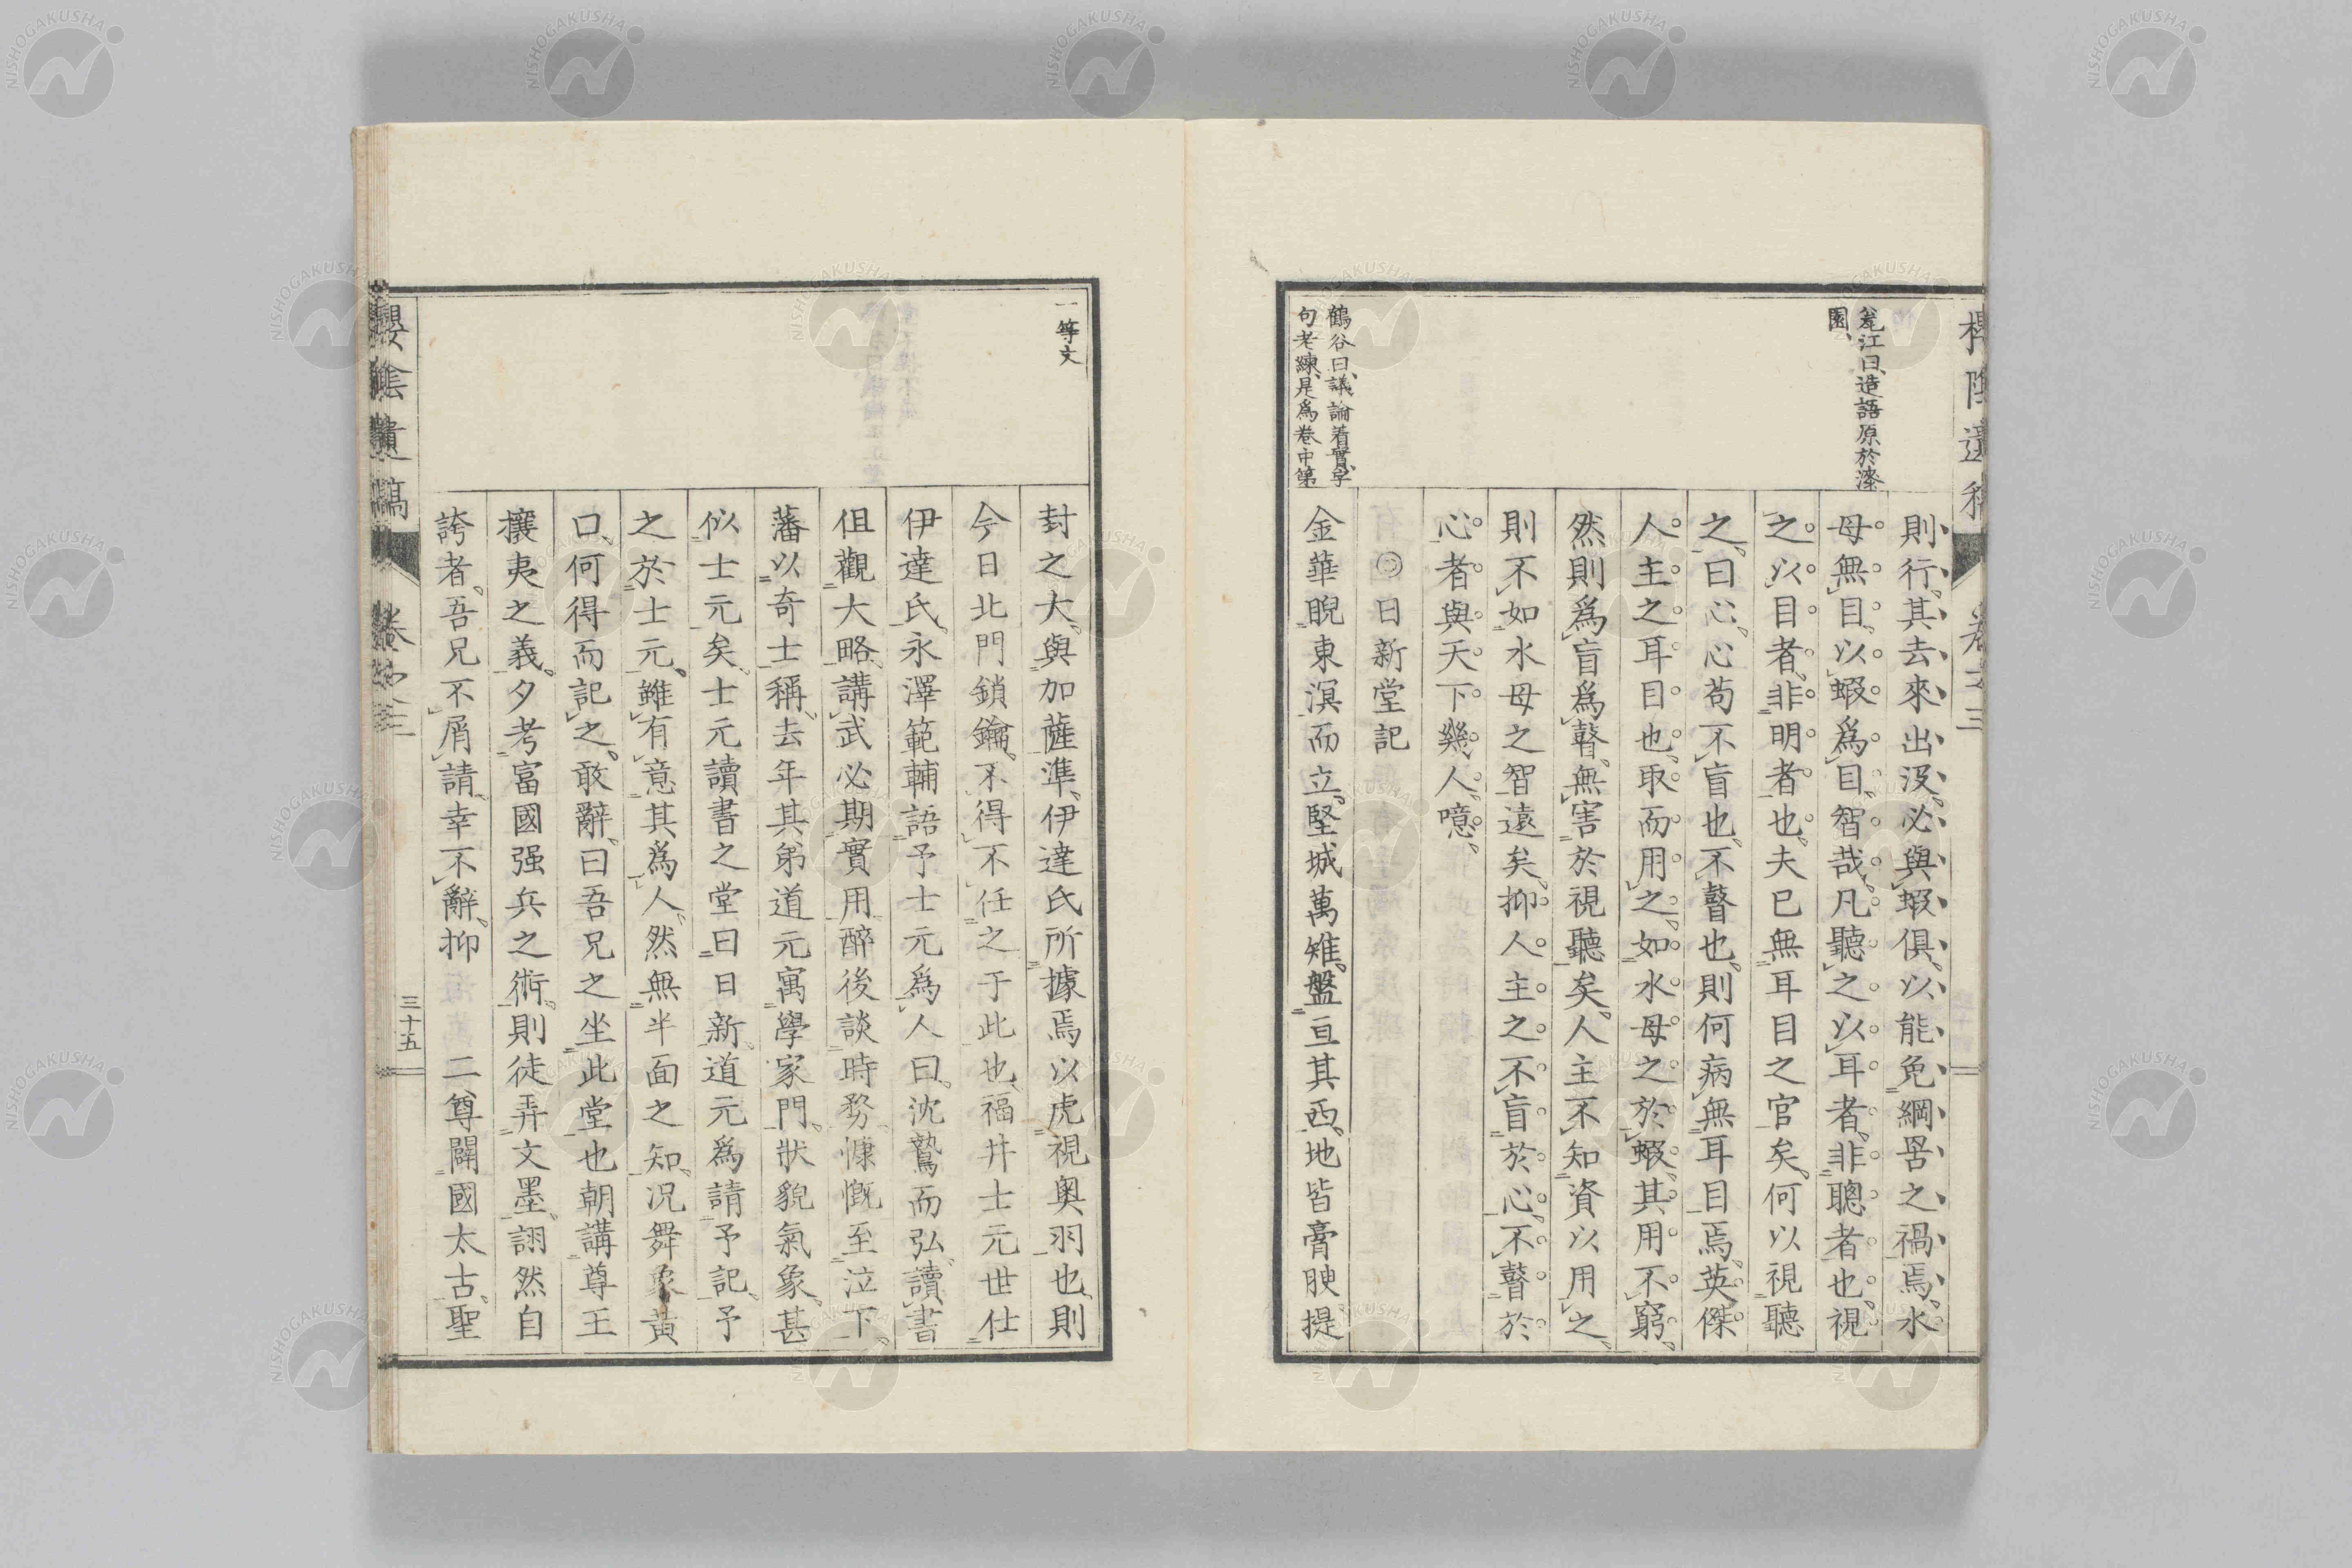 甕江曰、造語原於漆
園、
則行、其去來出沒、必與蝦俱、以能免網罟之禍焉、水
母無目、以蝦爲目、智哉、凡聽之以耳者、非聰者也、視
之以目者、非明者也、夫已無耳目之官矣、何以視聽
之、曰心、心苟不盲也、不瞽也、則何病無耳目焉、英傑
人主之耳目也、取而用之、如水母之於蝦、其用不窮、
然則爲盲爲瞽、無害於視聽矣、人主不知資以用之、
則不如水母之智遠矣、抑人主之不盲於心、不瞽於
心者、與天下幾人、噫、
◎日新堂記
鶴谷曰、議論着實、字
句老練、是爲卷中第
金華睨東溟而立、堅城萬雉、盤亘其西、地皆膏腴、提
一等文
封之大、與加薩準、伊達氏所據焉以虎視奥羽也、則
今日北門鎖鑰、不得不任之于此也、福井士元世仕
伊達氏、永澤範輔語予士元爲人曰、沈鷙而弘、讀書
但觀大略、講武必期實用、醉後談時務、慷慨至泣下、
藩以奇士稱、去年其弟道元寓學家門、狀貌氣象、甚
似士元矣、士元讀書之堂曰日新、道元爲請予記、予
之於士元、雖有意其爲人、然無半面之知、況舞象黃
口、何得而記之、敢辭、曰吾兄之坐此堂也、朝講尊王
攘夷之義、夕考富國强兵之術、則徒弄文墨、詡然自
誇者、吾兄不屑、請幸不辭、抑　　二尊闢國太古、聖
櫻陰遺稿
卷之三
三十五